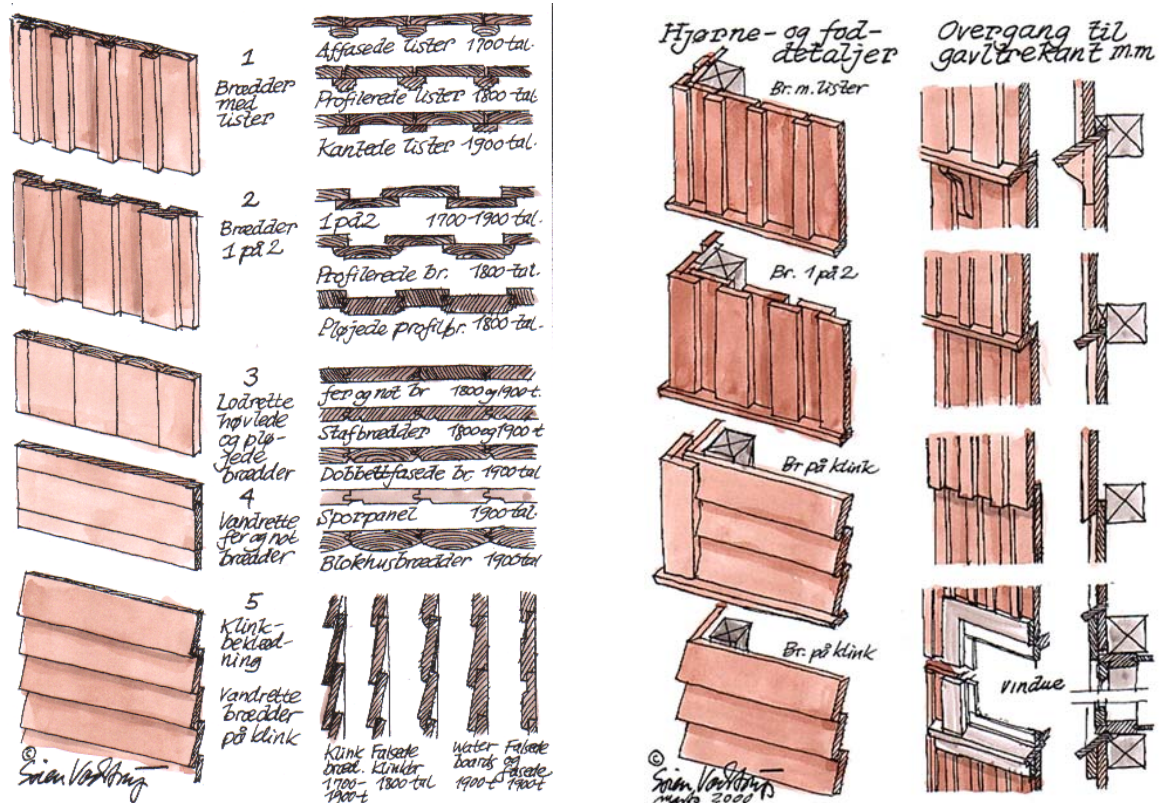 1
Brædder
med
lister
Affasede lister 1700-tal.
Profilerede lister 1800-tal.
Kantede lister 1900-tal.
2
Brædder
1 på 2
1 på 2 1700-1900-tal.
Profilerede br. 1800-tal.
Pløjede profilbr. 1800-tal.
3
Lodrette
høvlede
og plø-
jede
brædder
fer og not br 1800 og 1900-t.
Stafbrædder 1800 og 1900-t
Dobbeltfasede br. 1900-tal
4
Vandrette
fer og not
brædder
Sporpanel 1900-tal.
Blokhusbrædder 1900-tal
5
Klink-
beklæd-
ning
Vandrette
brædder
på klink
Klink
bræd.
1700-
1900-t
Falsede
klinkbr
1800-tal
Water
boards
1900-t
Falsede
og
fasede
1900-t
© Søren Vadstrup
Hjørne- og fod-
detaljer
Br. m. lister
Br. 1 på 2
Br på klink
Br. på klink
© Søren Vadstrup
marts 2000
Overgang til
gavltrekant m.m
vindue